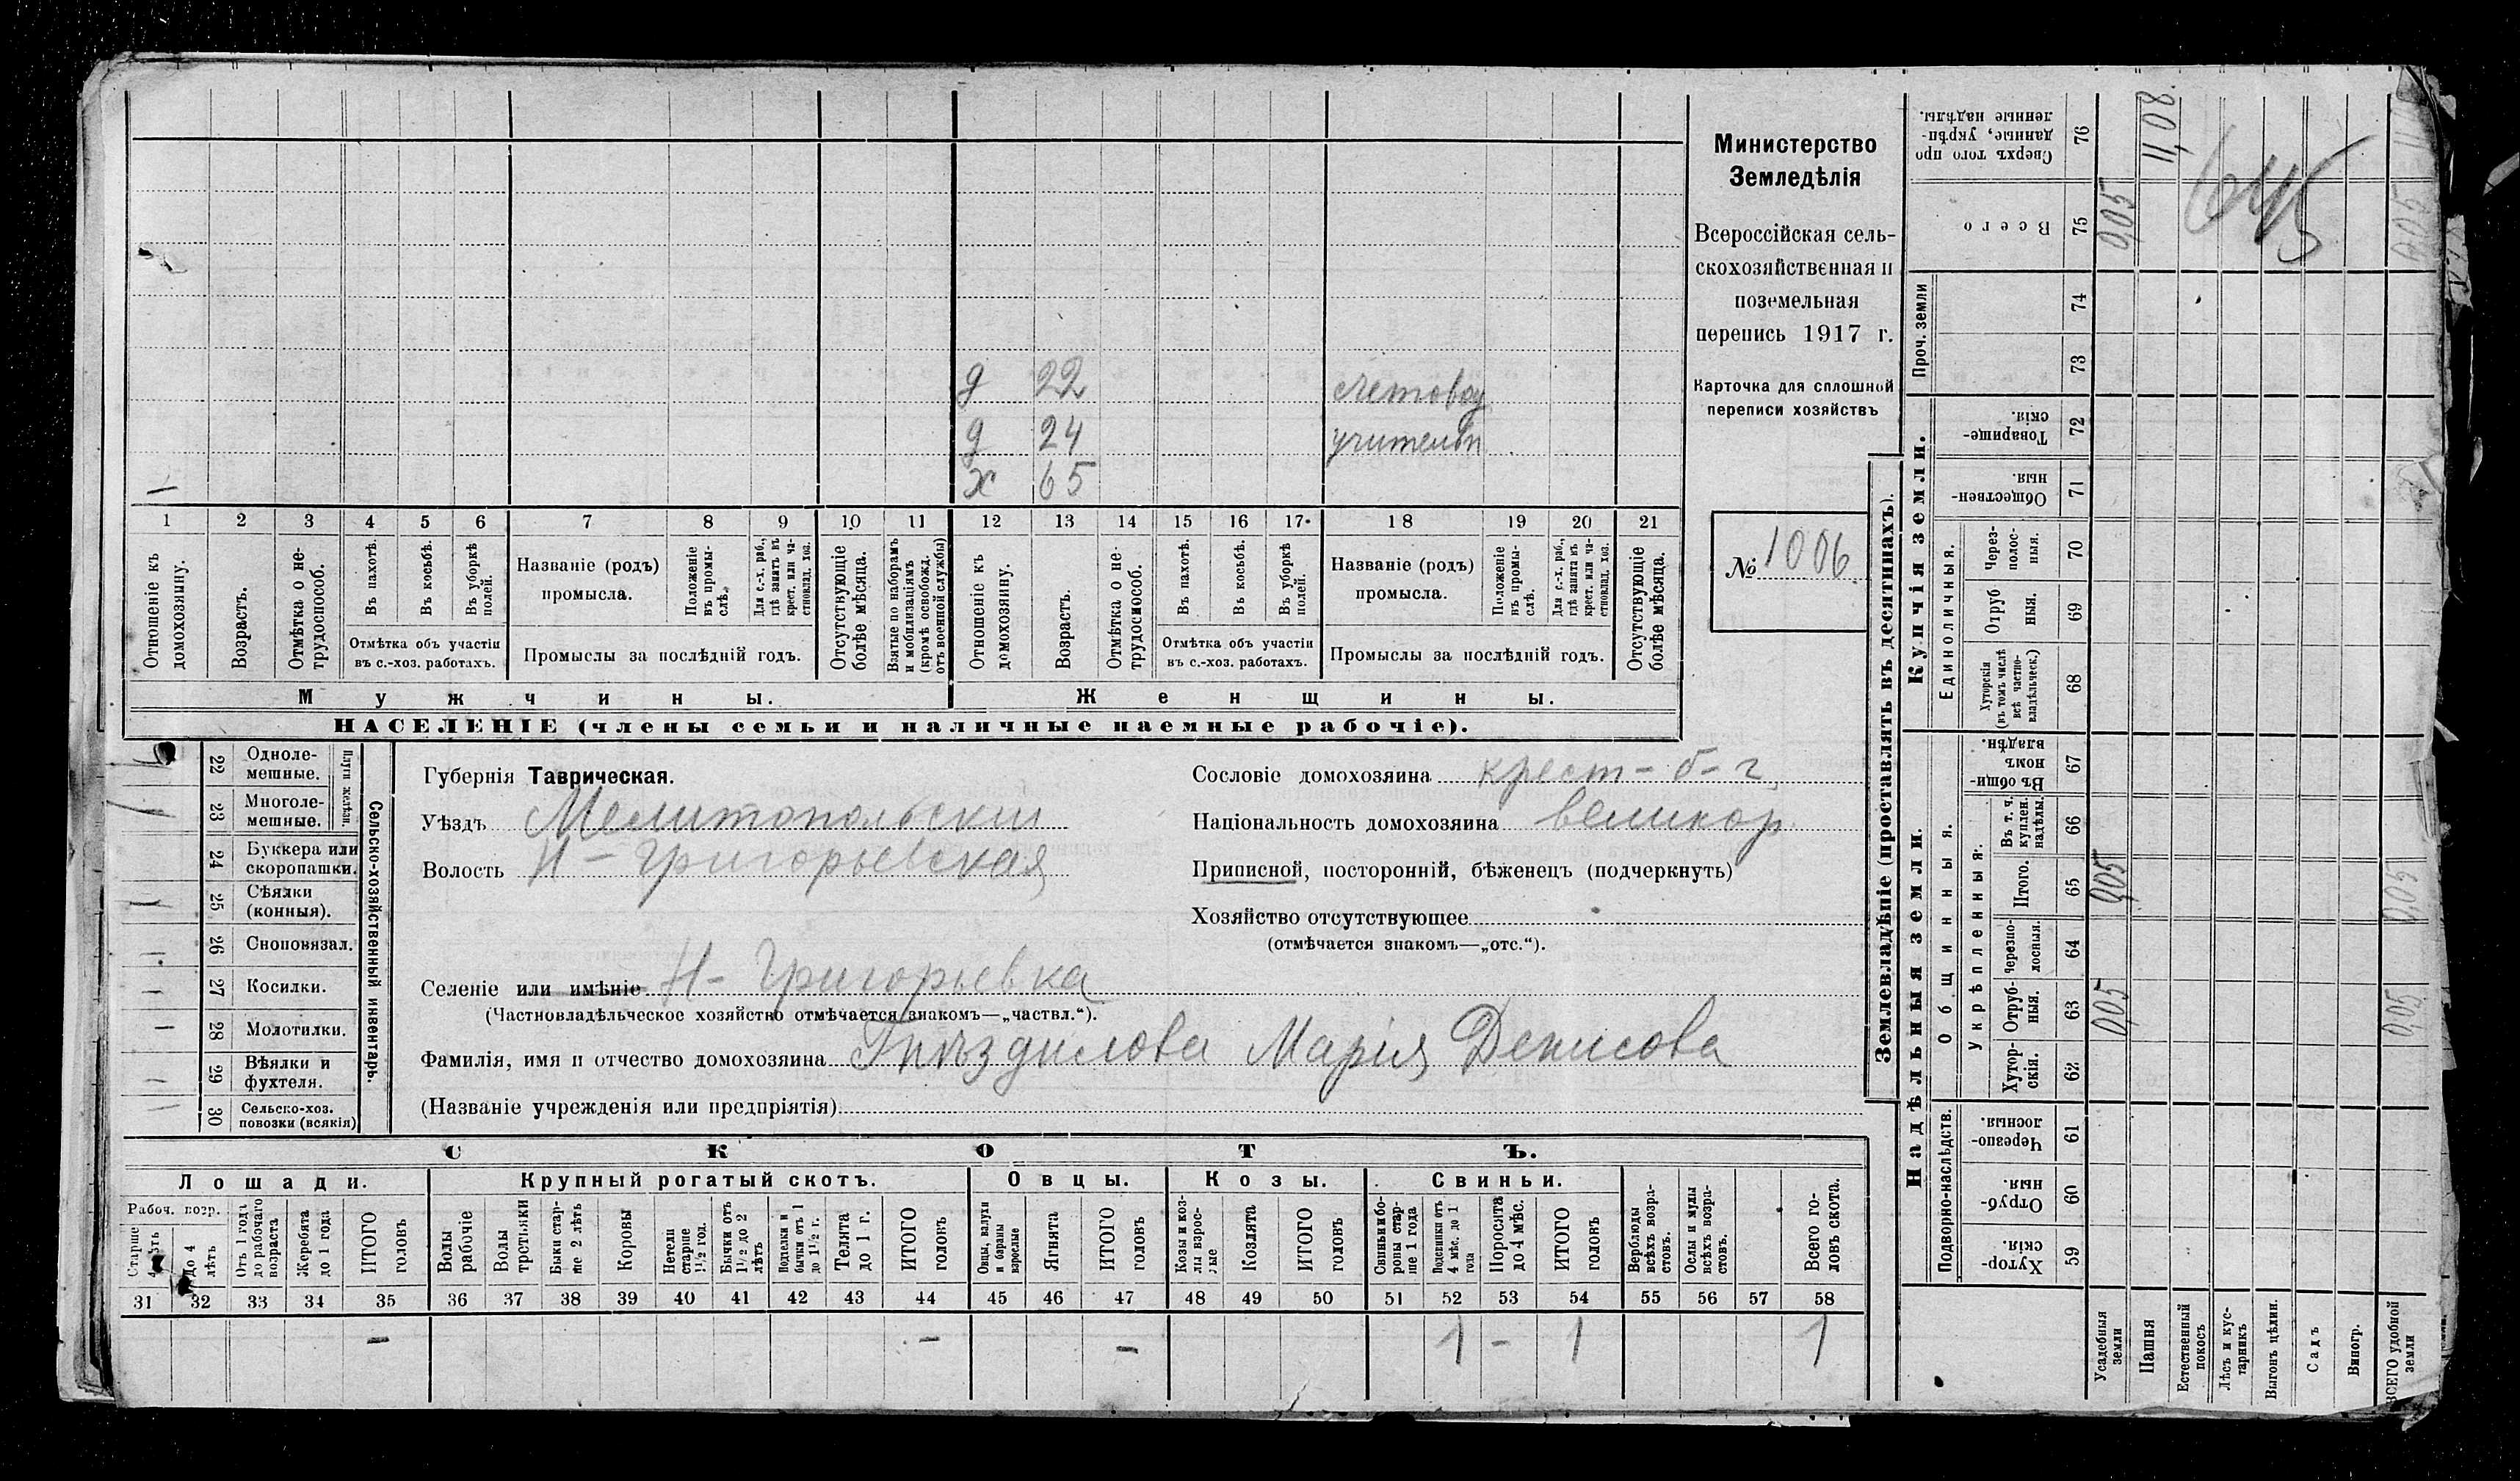 Министерство
Земледѣлія
Всероссійская сель-
скохозяйственная и
поземельная
перепись 1917 г.
Карточка для сплошной
переписи хозяйствъ
№ 1006
д 22
д 24
х 65
1 2 3 4 5 6 7 8 9 10 11 12 13 14 15 16 17 18 19 20 21
Отношеніе къ домохозяину.
Возрастъ.
Отмѣтка о не-трудоспособ.
Въ пахотѣ.
Въ косьбѣ.
Въ уборкѣ полей.
Отмѣтка объ участіи
въ с.-хоз. работахъ.
Названіе (родъ)
промысла.
Положеніе въ промы-слѣ.
Для с.-х. раб., гдѣ занятъ въ крест. или ча-стновлад. хоз.
Промыслы за послѣдній годъ.
Отсутствующіе болѣе мѣсяца.
Взятые по наборамъ и мобилизаціямъ (кромѣ освобожд. отъ военной службы)
Отношеніе къ домохозяину.
Возрастъ.
Отмѣтка о не-трудоспособ.
Въ пахотѣ.
Въ косьбѣ.
Въ уборкѣ полей.
Отмѣтка объ участіи
въ с.-хоз. работахъ.
Названіе (родъ)
промысла.
Положеніе въ промы-слѣ.
Для с.-х. раб., гдѣ занята въ крест. или ча-стновлад. хоз.
Промыслы за послѣдній годъ.
Отсутствующіе болѣе мѣсяца.
Мужчины.
Женщины.
НАСЕЛЕНІЕ (члены семьи и наличные наемные рабочіе).
22 Одноле-мешные.
23 Многоле-мешные.
Плуги желѣзн.
24 Буккера или скоропашки.
25 Сѣялки (конныя).
26 Сноповязал.
27 Косилки.
28 Молотилки.
29 Вѣялки и фухтеля.
30 Сельско-хоз. повозки (всякія)
Сельско-хозяйственный инвентарь.
Губернія Таврическая.
Уѣздъ Мелитопольскій
Волость Н-Григорьевская
Селеніе или имѣніе Н-Григорьевка
(Частновладѣльческое хозяйство отмѣчается знакомъ—„частвл.“).
Фамилія, имя и отчество домохозяина Гнѣздилова Марія Денисова
(Названіе учрежденія или предпріятія)
Сословіе домохозяина крест-
Національность домохозяина великор
Приписной, посторонній, бѣженецъ (подчеркнуть)
Хозяйство отсутствующее
(отмѣчается знакомъ—„отс.“).
СКОТЪ.
Лошади.
Крупный рогатый скотъ.
Овцы.
Козы.
Свиньи.
Рабоч. возр.
Старше 4 лѣтъ
до 4 лѣтъ
Отъ 1 года до рабочаго возраста
Жеребята до 1 года
ИТОГО головъ
Волы рабочіе
Волы третьяки
Быки стар-ше 2 лѣтъ
Коровы
Нетели старше 1½ год.
Бычки отъ 1½ до 2 лѣтъ
Подтелки и бычки отъ 1 до 1½ г.
Телята до 1 г.
ИТОГО головъ
Овцы, валухи и бараны взрослые
Ягнята
ИТОГО головъ
Козы и коз-лы взрос-лые
Козлята
ИТОГО головъ
Свиньи и бо-ровы стар-ше 1 года
Подсвинки отъ 4 мѣс. до 1 года
Поросята до 4 мѣс.
ИТОГО головъ
Верблюды всѣхъ возра-стовъ.
Ослы и мулы всѣхъ возра-стовъ.
Всего го-ловъ скота.
31 32 33 34 35 36 37 38 39 40 41 42 43 44 45 46 47 48 49 50 51 52 53 54 55 56 57 58
- - - 1 - 1 1
Землевладѣніе (проставлять въ десятинахъ).
Надѣльныя земли.
Купчія земли.
Проч. земли
Подворно-наслѣдств.
Общинныя.
Укрѣпленныя.
Единоличныя.
59 Хутор-скія.
60 Отруб-ныя.
61 Черезпо-лосныя.
62 Хутор-скія.
63 Отруб-ныя.
64 Черезпо-лосныя.
65 Итого.
66 Въ т. ч. куплен. надѣлы.
67 Въ общи-номъ владѣн.
68 Хуторскія (въ томъ числѣ всѣ частно-владѣльческ.)
69 Отруб ныя.
70 Через-полос-ныя.
71 Обществен-ныя.
72 Товарище-скія.
73
74
75 Всего
76 Сверхъ того про данные, укрѣп-ленные надѣлы.
Усадебныя земли 0,05 0,05 0,05
Пашня 11,08
Естественный покосъ
Лѣсъ и кус-тарникъ
Выгонъ цѣлин.
Садъ
Виногр.
ВСЕГО удобной земли 0,05 0,05 0,05